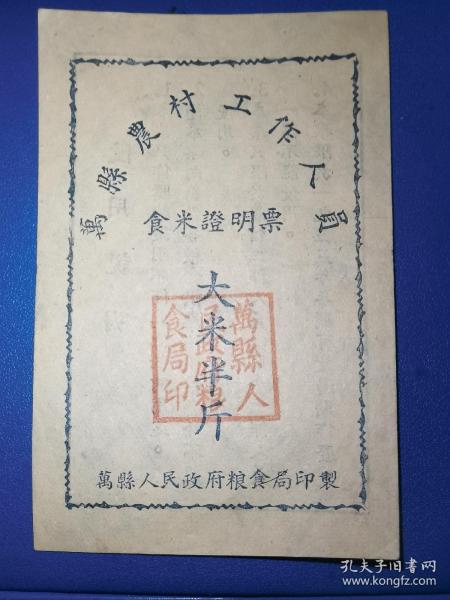 萬縣農村工作人員
食米證明票
大米半斤
萬縣人民政府粮食局印
萬縣人民政府粮食局印製
孔夫子旧书网
www.kongfz.com